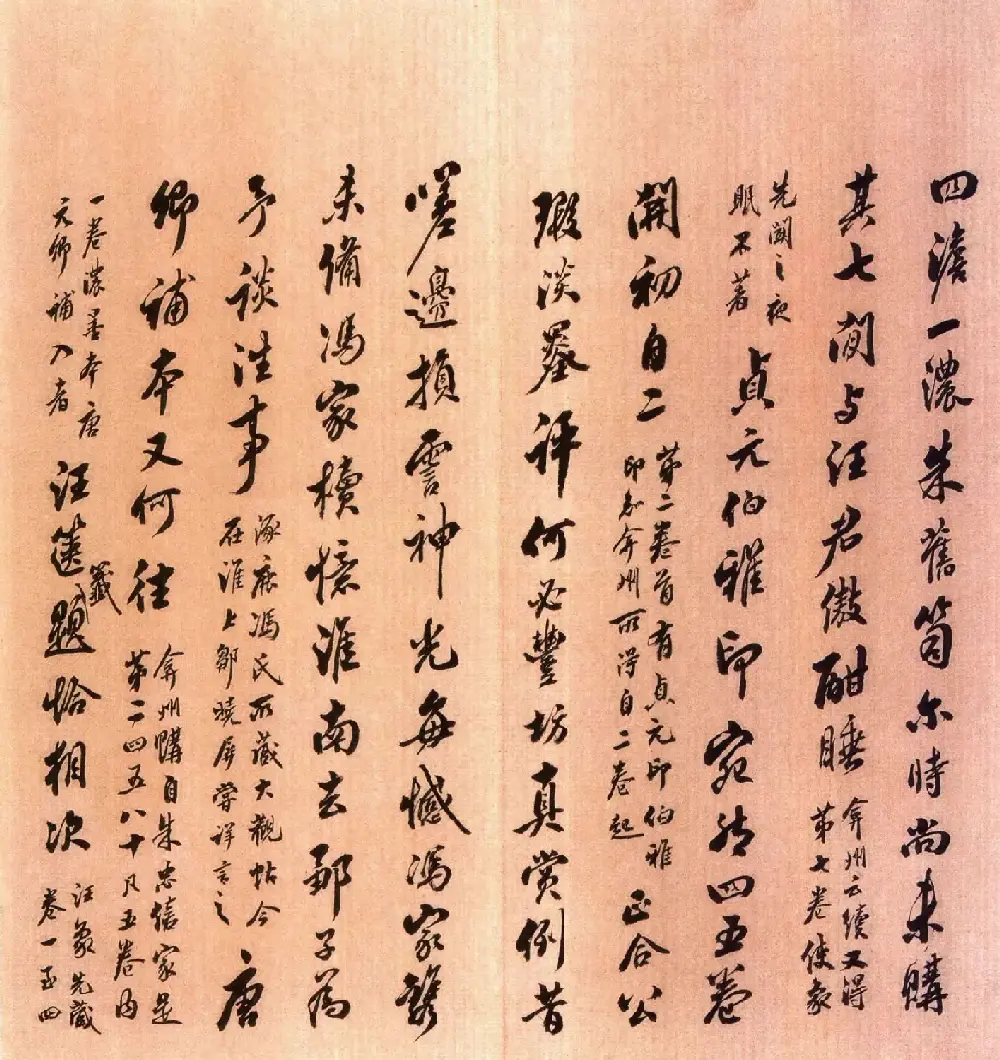 四澹一濃朱舊笥尔時尚未購
其七閒与汪君儌酣睡
弇州云續又得
第七卷使象
先闋之夜
眠不著
貞元伯雅印宛然四五卷
開初自二
第二卷首有貞元印伯雅
印知弇州所得自二卷起
正合公
瑕淡墨評何必豐坊真賞例昔
嗟邊損雲神光每憾馮家
未備馮家櫝憶淮南去郵子為
予談往事
涿鹿馮氏所藏大觀帖今
在淮上鄒曉屏嘗詳言之
唐
卿補本又何往
弇州購自朱忠僖家是
第二四五八十凡五卷內
一卷濃墨本唐
元卿補入者
汪篋籤題恰相次
汪象先藏
卷一至四